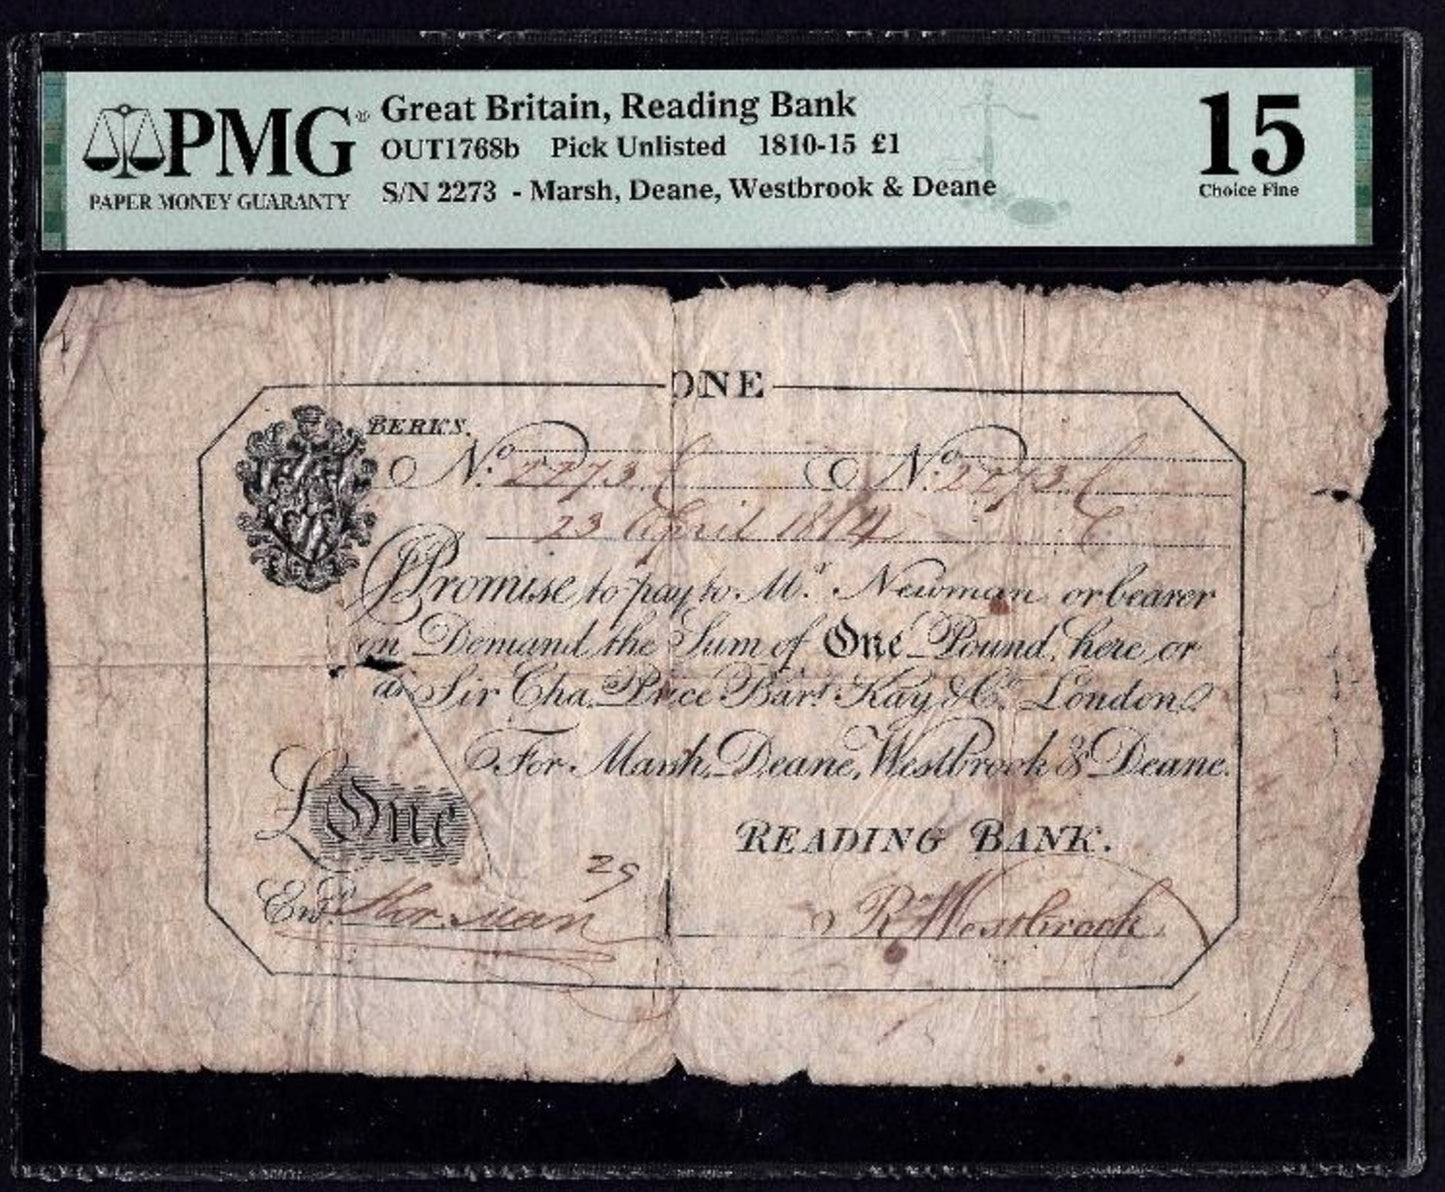 PMG®
PAPER MONEY GUARANTY
Great Britain, Reading Bank
OUT1768b Pick Unlisted 1810-15 £1
S/N 2273 - Marsh, Deane, Westbrook & Deane
15
Choice Fine
ONE
BERKS.
No. 2273 No. 2273
23 April 1814
I Promise to pay to Mr. Newman or bearer
on Demand the Sum of One Pound, here or
at Sir Cha. Price Bart. Kay & Co. London
For Marsh, Deane, Westbrook & Deane.
£One
READING BANK.
29
Entd. R. Westbrook